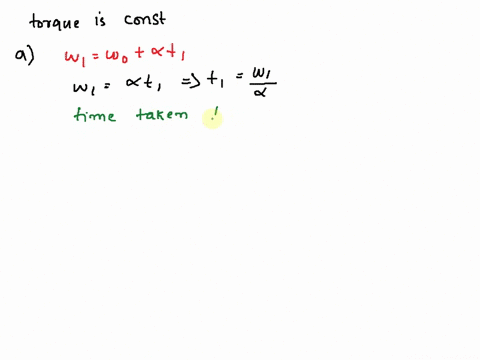 torque is const
a) ω₁ = ω₀ + αt₁
ω₁ = αt₁ => t₁ = ω₁/α
time taken